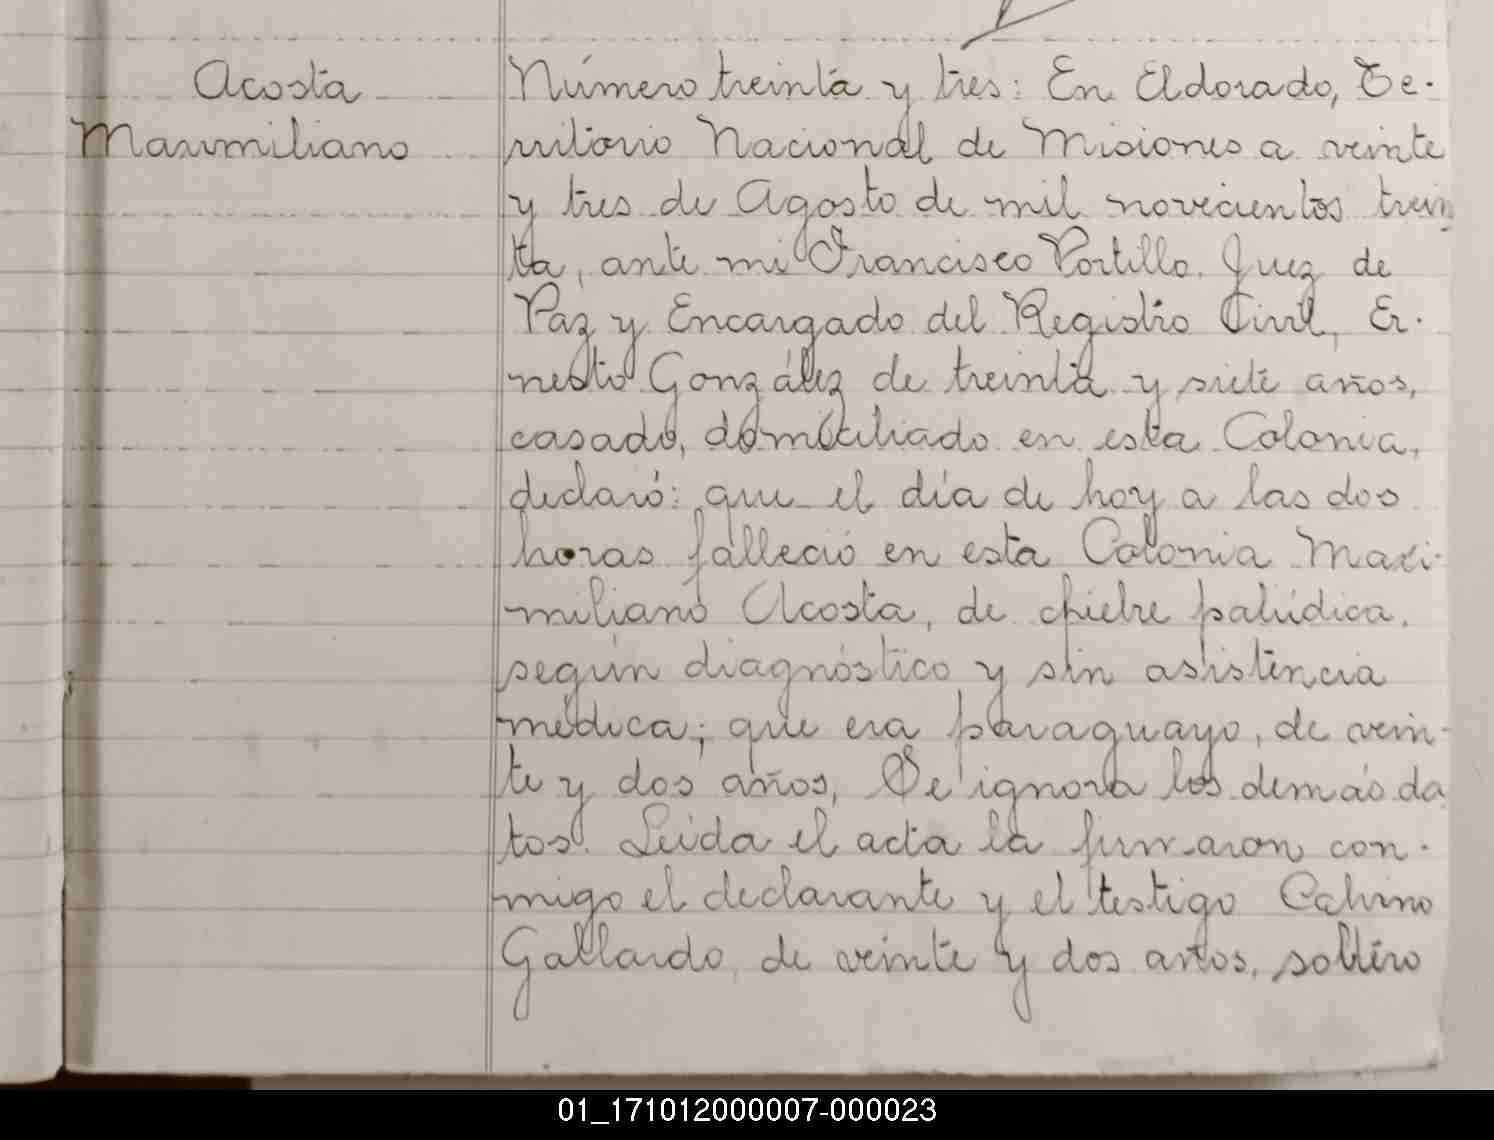 Acosta
Maximiliano
Número treinta y tres: En Eldorado, Te-
rritorio Nacional de Misiones a veinte
y tres de Agosto de mil novecientos trein
ta, ante mi Francisco Portillo Juez de
Paz y Encargado del Registro Civil, Er-
nesto González de treinta y siete años,
casado, domiciliado en esta Colonia,
declaró: que el día de hoy a las dos
horas falleció en esta Colonia Maxi-
miliano Acosta, de fiebre palúdica,
según diagnóstico y sin asistencia
médica; que era paraguayo, de vein-
te y dos años, Se ignora los demás da
tos. Leida el acta la firmaron con-
migo el declarante y el testigo Calvino
Gallardo, de veinte y dos años, soltero
01_171012000007-000023